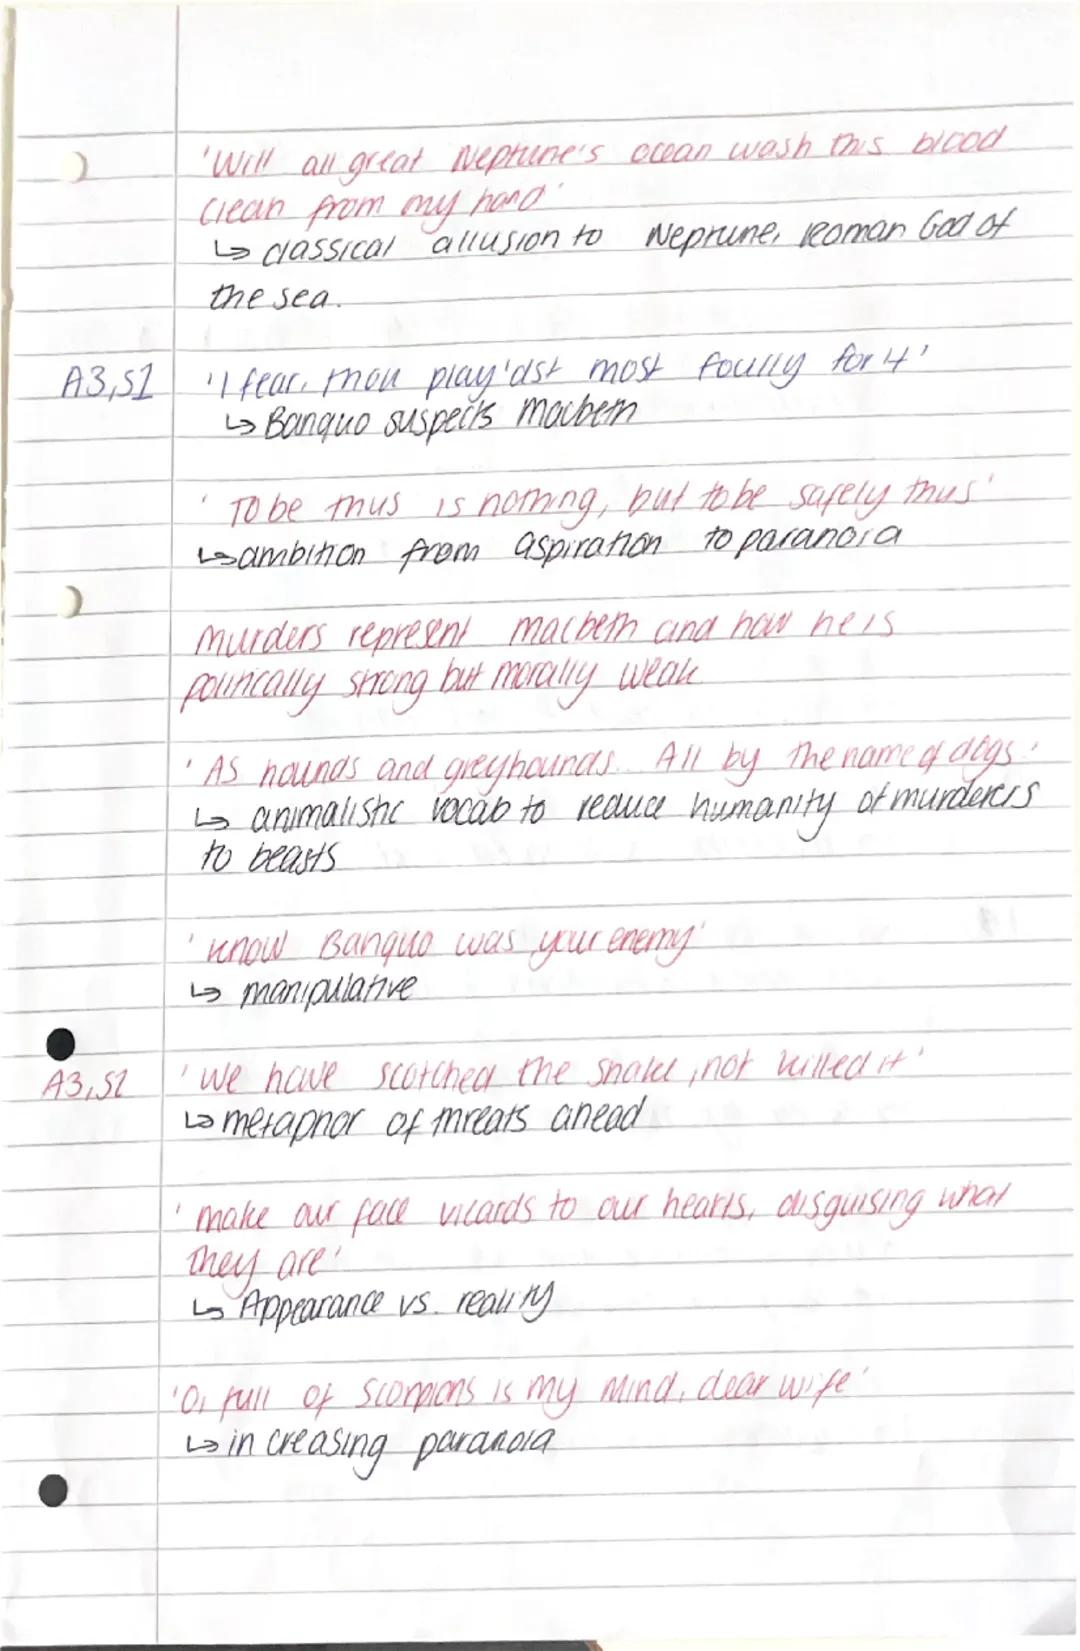 'Will all great Neptune's ocean wash this blood
clean from my hand'
↳ classical allusion to Neptune, Roman God of
the sea.
A3,S1 'I fear, thou play'dst most foully for 4'
↳ Banquo suspects Macbeth
'To be thus is nothing, but to be safely thus'
↳ ambition from aspiration to paranoia
Murders represent macbeth and how he is
politically strong but morally weak
'As hounds and greyhounds... All by the name of dogs.'
↳ animalistic vocab to reduce humanity of murderers
to beasts
'know Banquo was your enemy'
↳ manipulative
A3,S2 'We have scotched the snake, not killed it'
↳ metaphor of threats ahead
'make our face vizards to our hearts, disguising what
they are'
↳ Appearance vs. reality
'O, full of Scorpions is my mind, dear wife'
↳ increasing paranoia